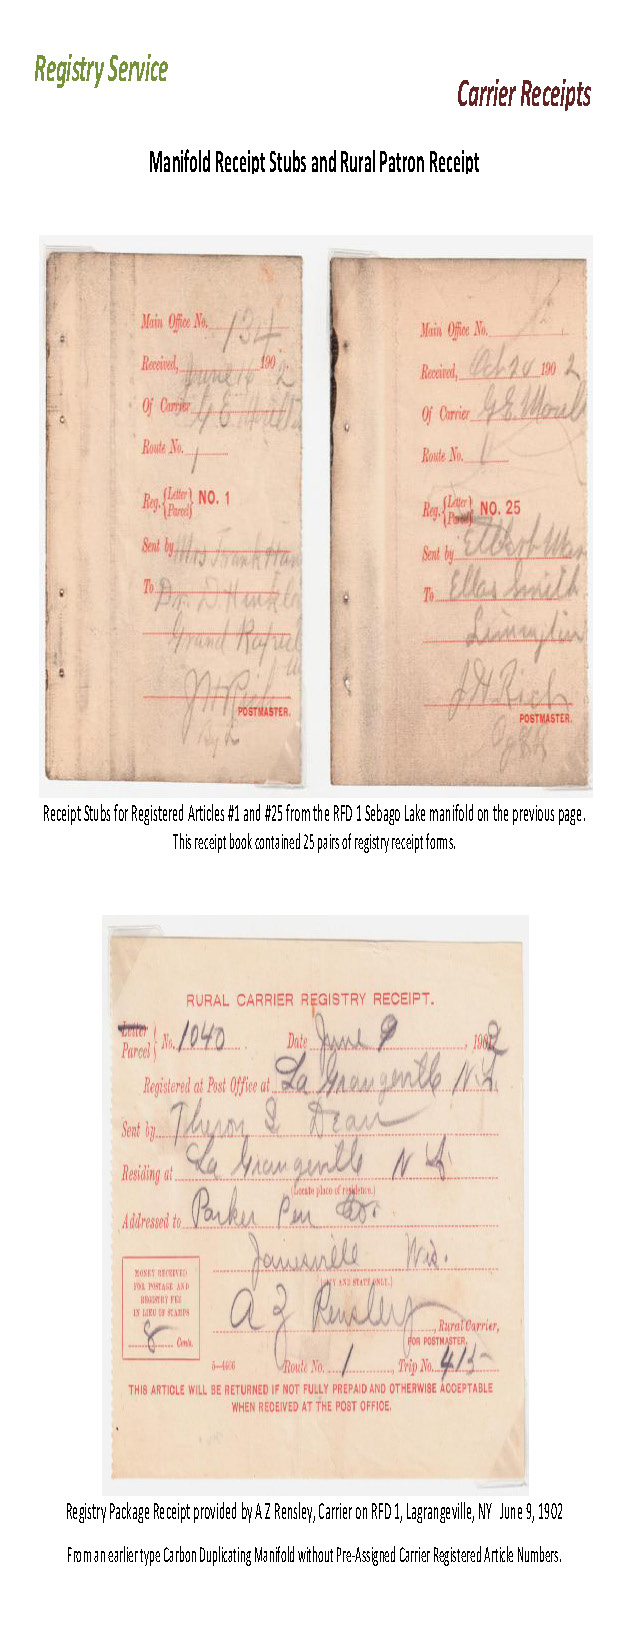 Registry Service
Carrier Receipts
Manifold Receipt Stubs and Rural Patron Receipt
Main Office No. 134
Received, June 16 1902
Of Carrier G E
Route No. 1
Reg. {Letter Parcel} NO. 1
Sent by Mrs Frank
To Dr. D.
Grand
J H Rich
POSTMASTER.
Main Office No.
Received, Oct 20 1902
Of Carrier G. E.
Route No. 1
Reg. {Letter Parcel} NO. 25
Sent by
To Ellas Smith
Limington
J H Rich
POSTMASTER.
Receipt Stubs for Registered Articles #1 and #25 from the RFD 1 Sebago Lake manifold on the previous page.
This receipt book contained 25 pairs of registry receipt forms.
RURAL CARRIER REGISTRY RECEIPT.
Letter
Parcel } No. 1040 Date June 9, 1902
Registered at Post Office at La Grangeville N.Y.
Sent by Theron Dean
Residing at La Grangeville N Y
(Locate place of residence.)
Addressed to Parker Pen Co.
Janesville Wis.
(CITY AND STATE ONLY.)
MONEY RECEIVED
FOR POSTAGE AND
REGISTRY FEE
IN LIEU OF STAMPS
8 Cents.
A Z Rensley, Rural Carrier,
FOR POSTMASTER.
Route No. 1, Trip No. 415
THIS ARTICLE WILL BE RETURNED IF NOT FULLY PREPAID AND OTHERWISE ACCEPTABLE
WHEN RECEIVED AT THE POST OFFICE.
Registry Package Receipt provided by A Z Rensley, Carrier on RFD 1, Lagrangeville, NY June 9, 1902
From an earlier type Carbon Duplicating Manifold without Pre-Assigned Carrier Registered Article Numbers.